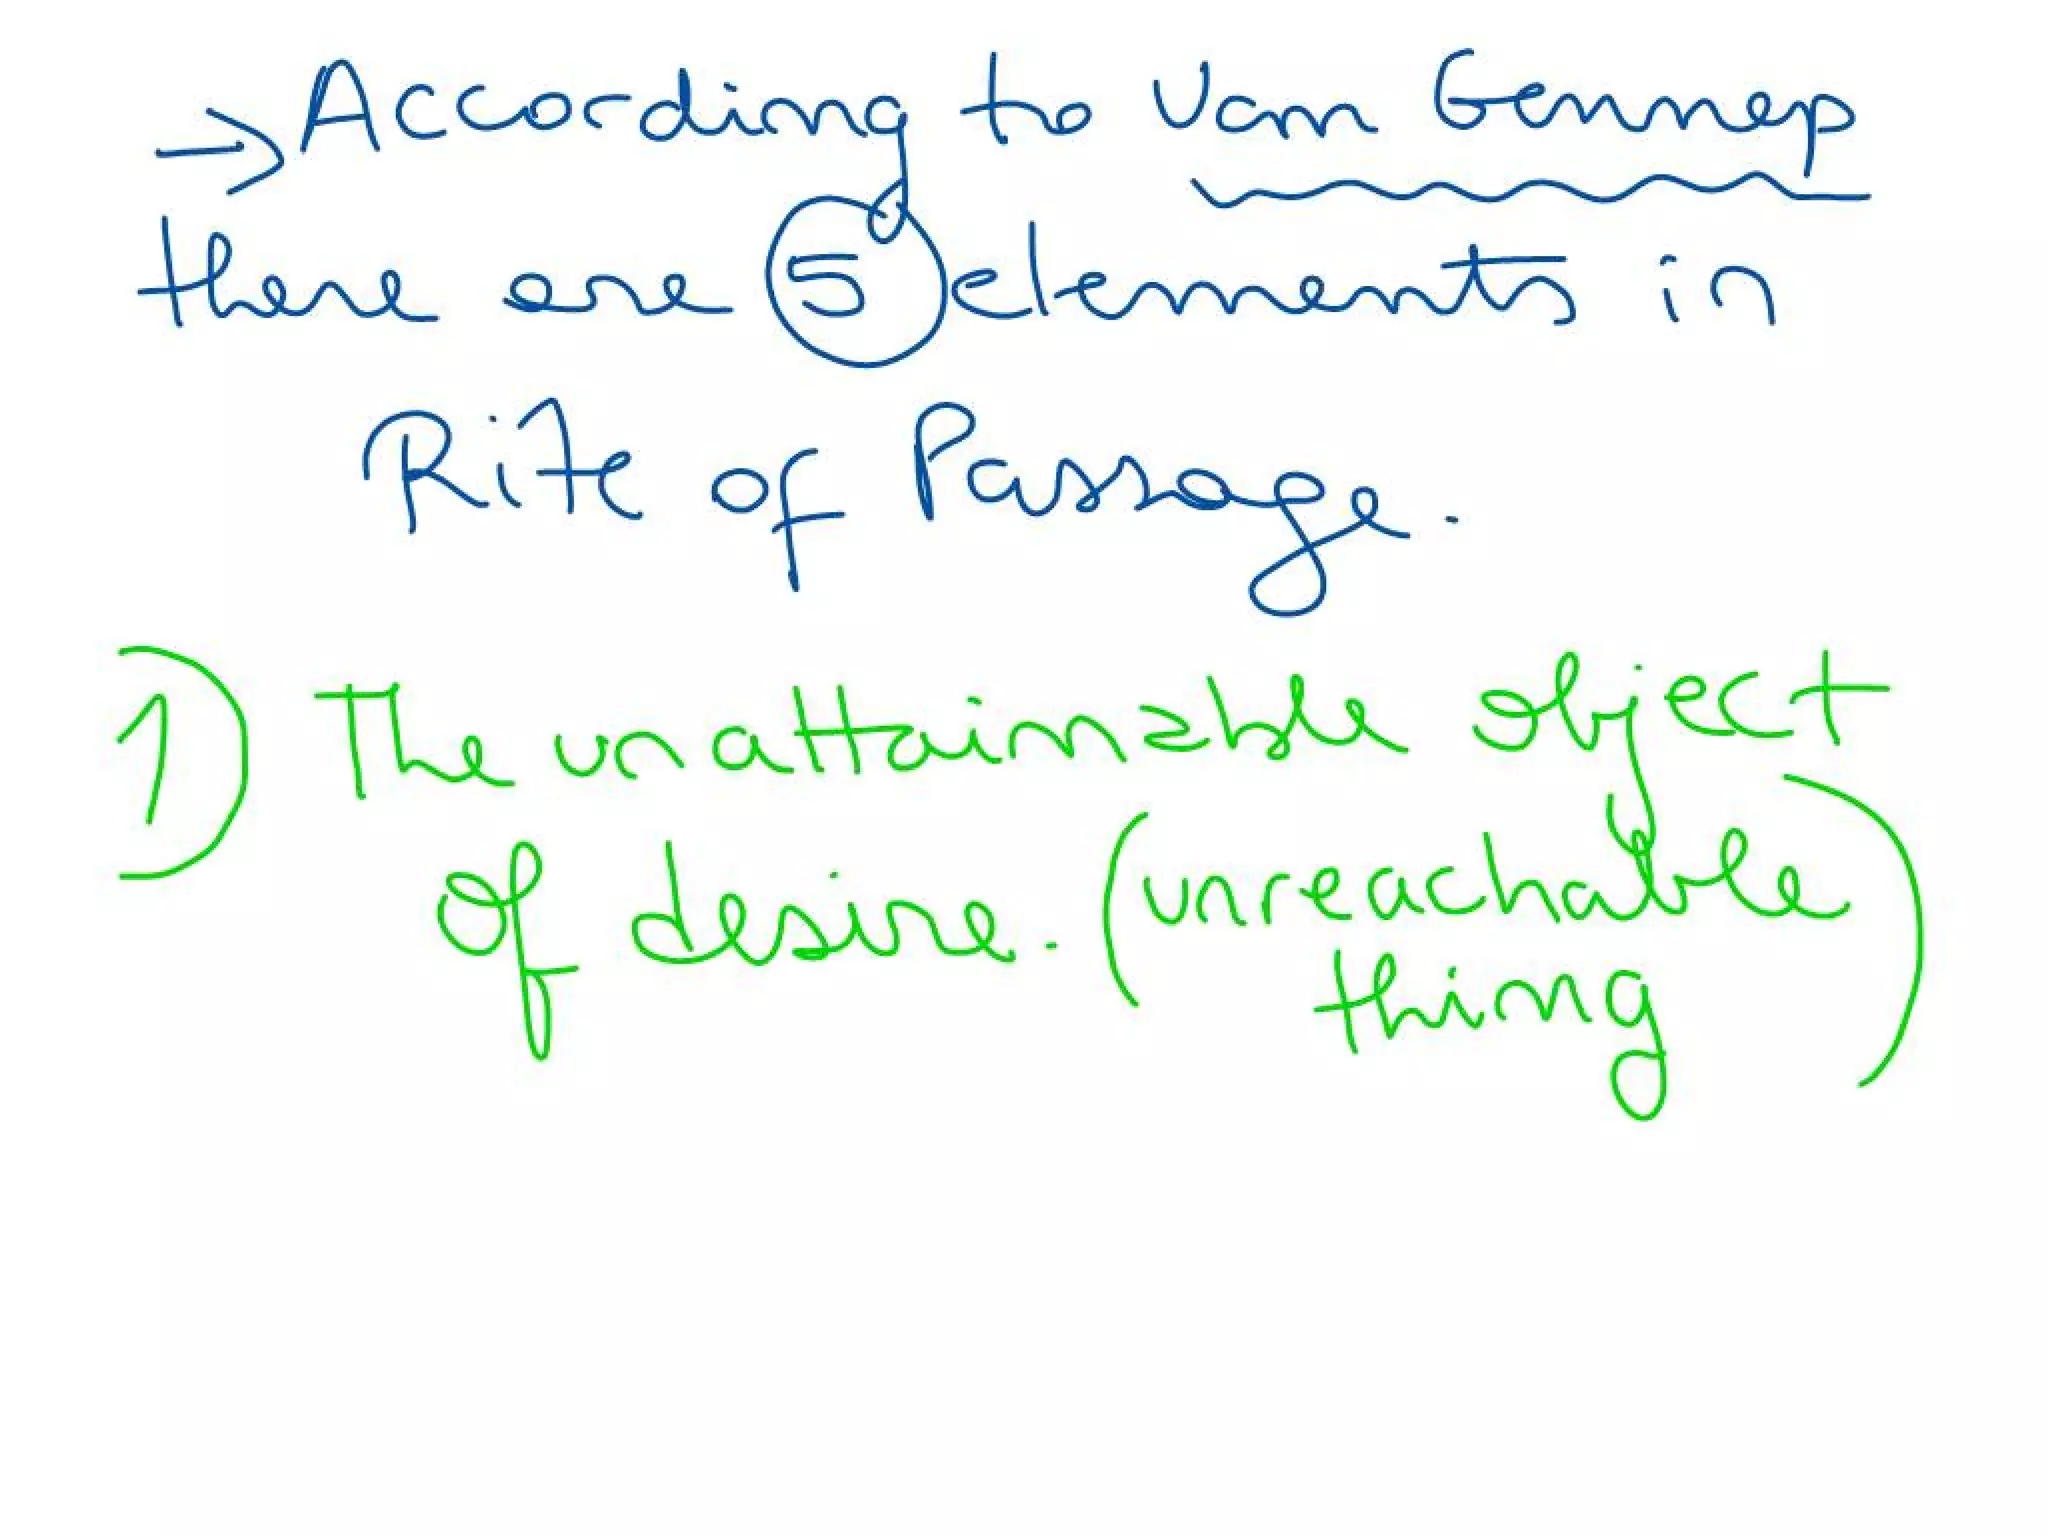 → According to Van Gennep
there are 5 elements in
Rite of Passage.
1) The unattainable object
of desire. (unreachable
thing)